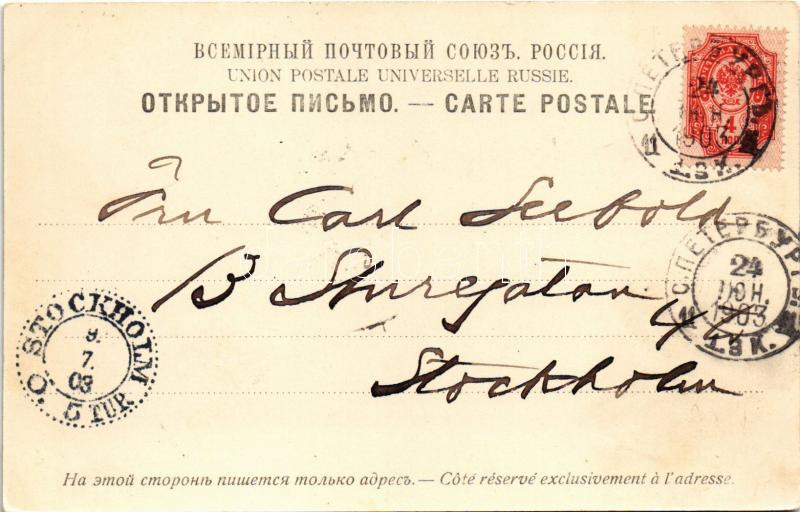 ВСЕМІРНЫЙ ПОЧТОВЫЙ СОЮЗЪ. РОССІЯ.
UNION POSTALE UNIVERSELLE RUSSIE.
ОТКРЫТОЕ ПИСЬМО. — CARTE POSTALE
С.ПЕТЕРБУРГЪ
24
ІЮН.
1903
11
1.ЭК.
4
Fru Carl Seebold
B Sturegatan
Stockholm
С.ПЕТЕРБУРГЪ
24
ІЮН.
1903
11
1.ЭК.
STOCKHOLM
7.
03
5 TUR.
На этой сторонѣ пишется только адресъ. — Côté réservé exclusivement à l'adresse.